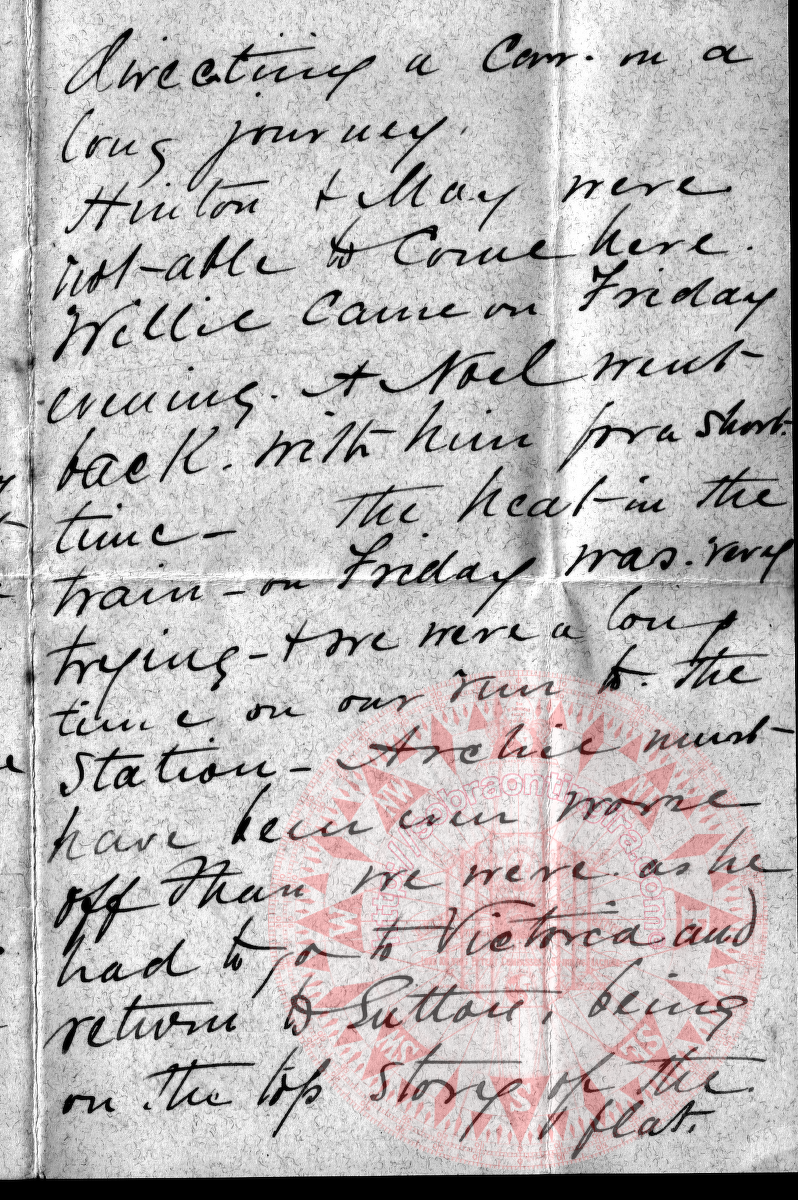 directing a car. on a
long journey.
Hinton & May were
not-able to Come here.
Willie Came on Friday
evening. & Noel went
back. with him for a short.
time - The heat-in the
train - on Friday was. very
trying - & we were a long
time on our run to. the
Station - Archie must-
have been even worse
off than we were. as he
had to go to Victoria and
return to Sutton, being
on the top story of the.
flat.